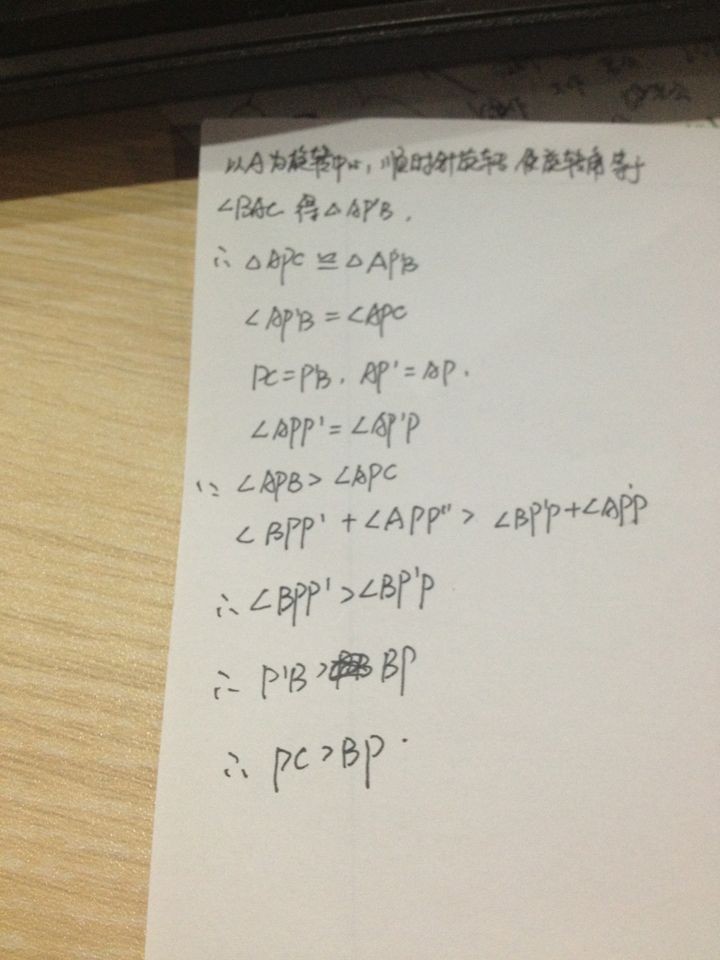 以A为旋转中心,顺时针旋转 使旋转角等于
∠BAC 得△AP'B.
∴ △APC ≌ △AP'B
∠AP'B = ∠APC
PC = P'B. AP' = AP.
∠APP' = ∠AP'P
∵ ∠APB > ∠APC
∠BPP' + ∠APP'' > ∠BP'P + ∠AP'P
∴ ∠BPP' > ∠BP'P
∴ P'B > BP
∴ PC > BP.